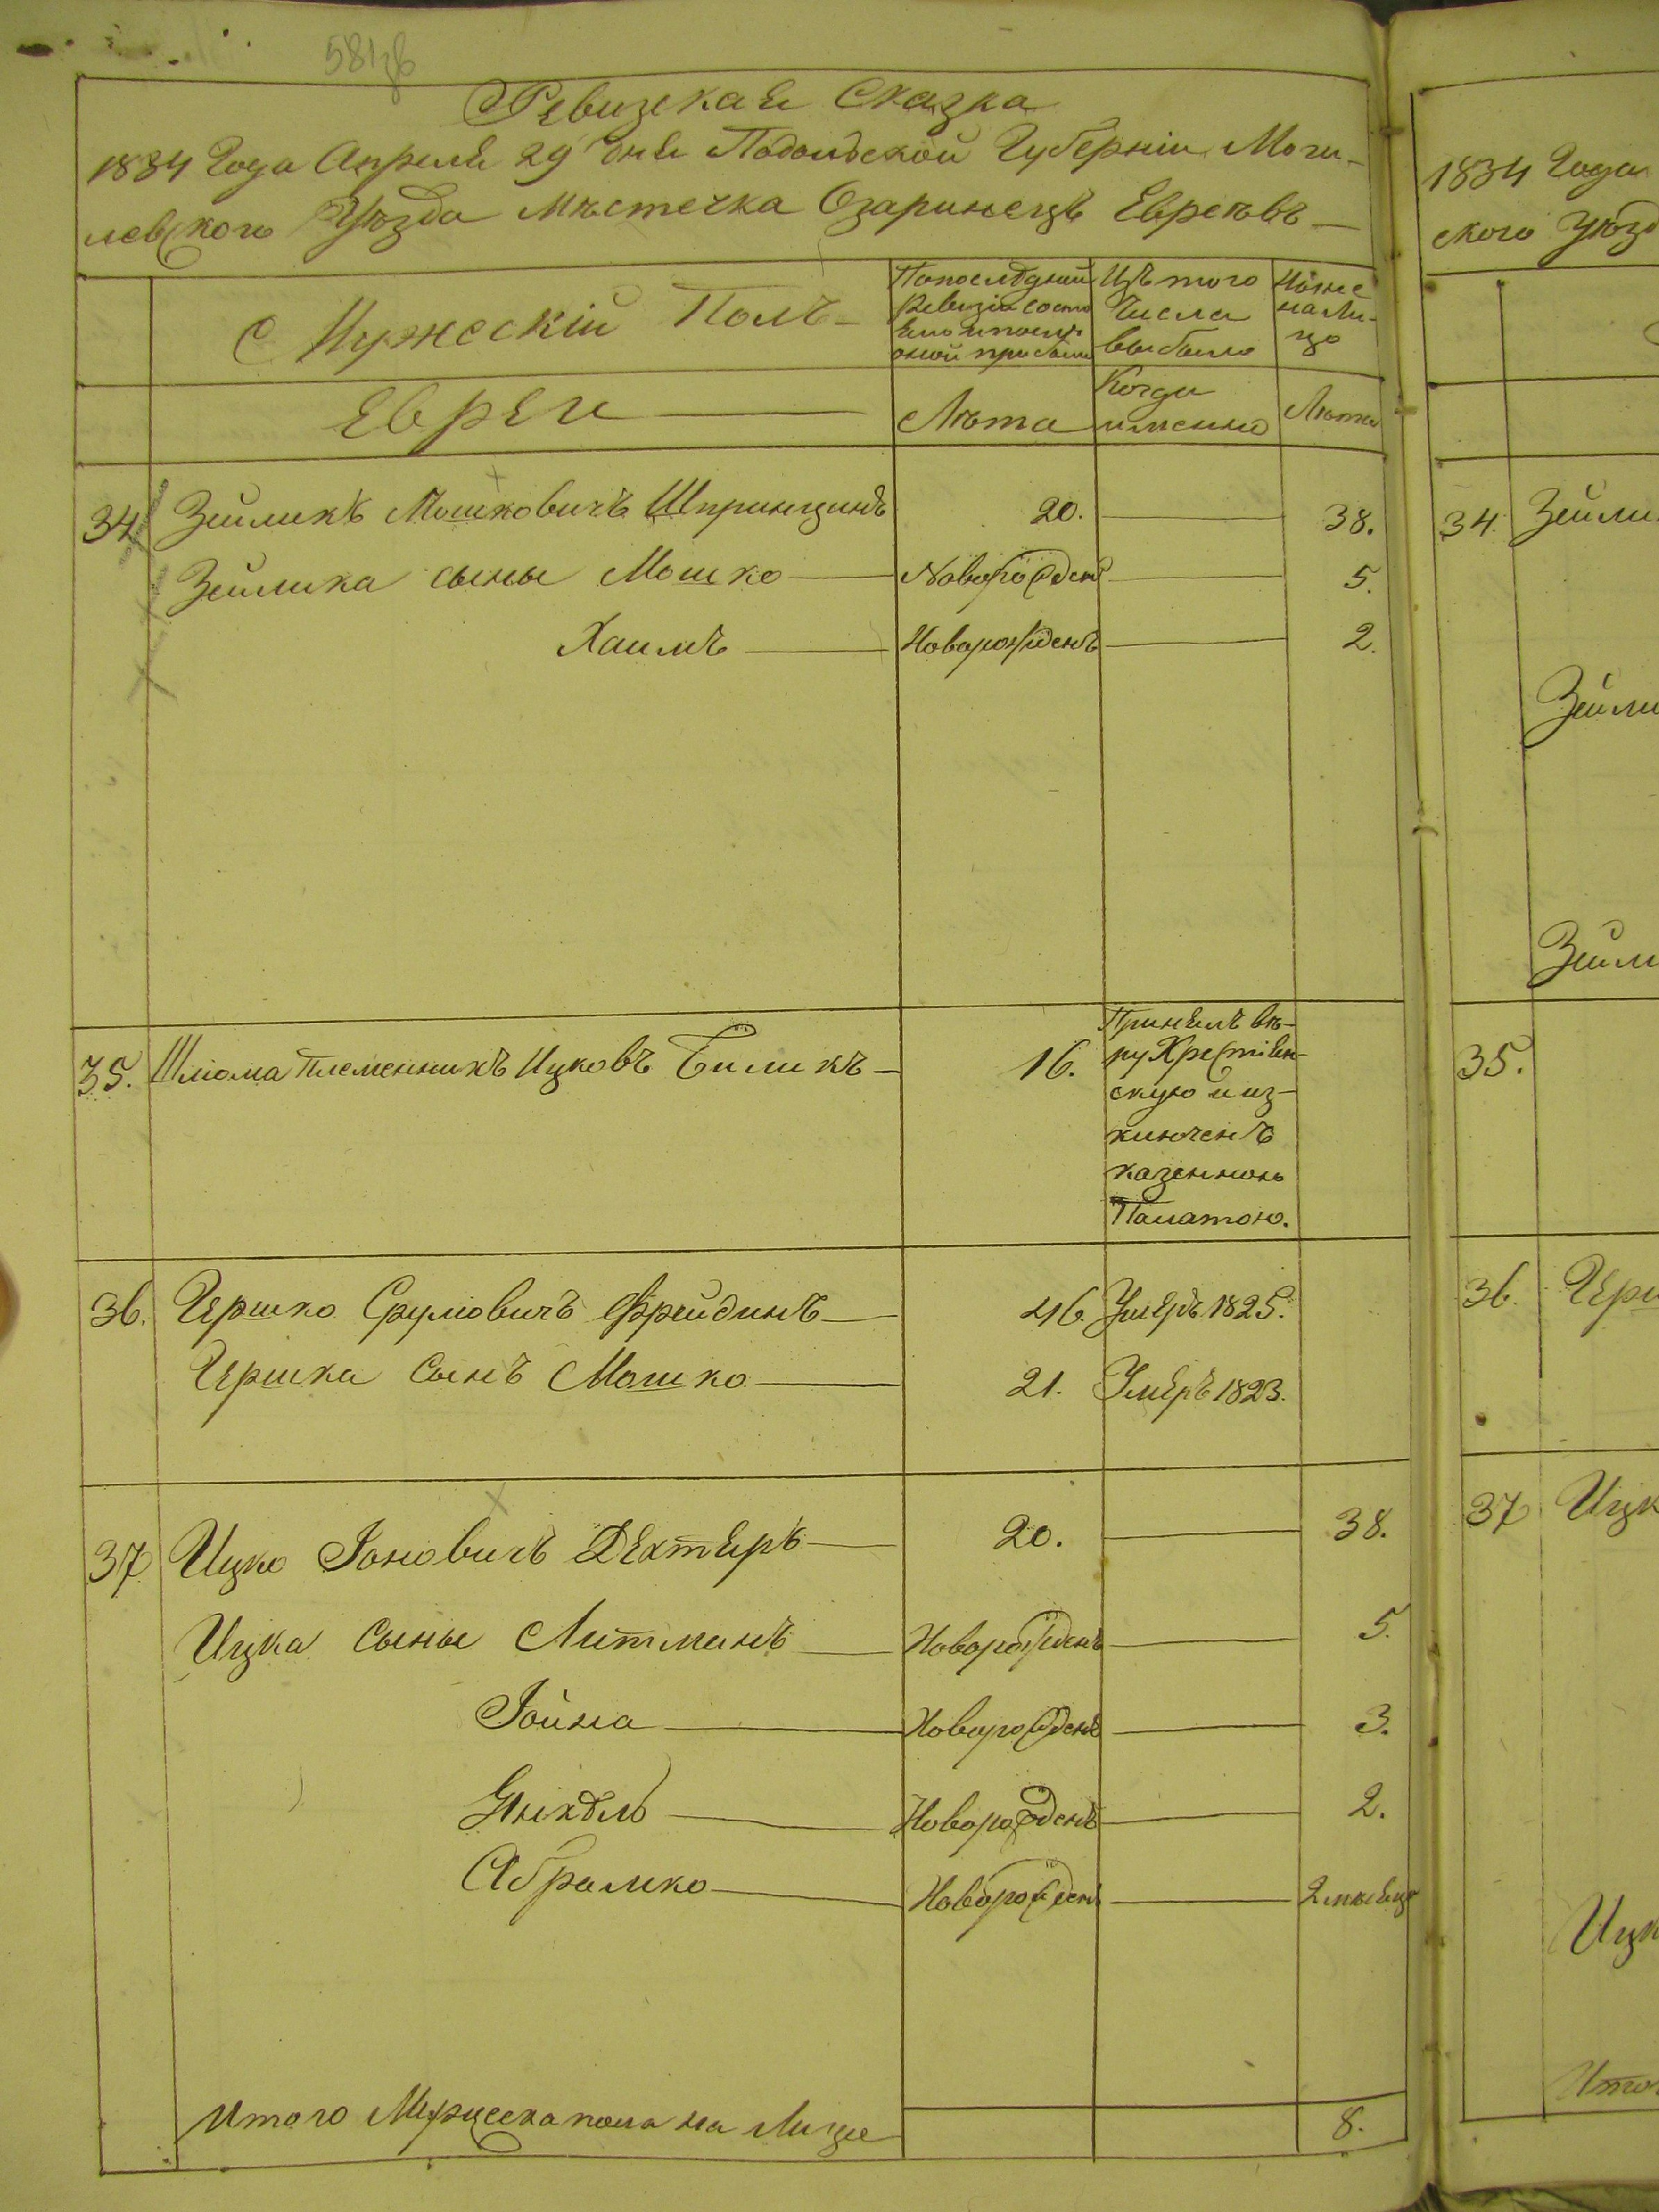 581 зв
Ревизская Сказка
1834 Года Апреля 29 дня Подольской Губернiи Моги-
левского Уѣзда Мѣстечка Озаринецъ Евреевъ
Мужескiй Полъ
По последней Ревизiи состо яло и после оной прибыло
Изъ того Числа выбыло
Ныне на Ли- цо
Евреи
Лѣта
Когда именно
Лѣта
34 Зейликъ Мошковичъ Шпринцинъ 20. 38.
Зейлика сыны Мошко Новорожденъ 5.
Хаимъ Новорожденъ 2.
35. Шлиома Племенникъ Ицковъ Биликъ 16.
Принялъ вѣ-
ру Хрестiян-
скую и из-
ключенъ
казенною
Палатою.
36. Гершко Сруловичъ Фрейдинъ 46 Умеръ 1825.
Гершка Сынъ Мошко 21. Умеръ 1823.
37 Ицко Iоновичъ Дехтяръ 20. 38.
Ицка Сыны Литманъ Новорожденъ 5.
Iойна Новорожденъ 3.
Янкель Новорожденъ 2.
Абрамко Новорожденъ 2 месяца
Итого Мужеска пола на Лице 8.
1834 Года
ского Уѣзд
34 Зейли
Зейли
Зейли
35.
36. Герш
37 Ицк
Ицк
Итог